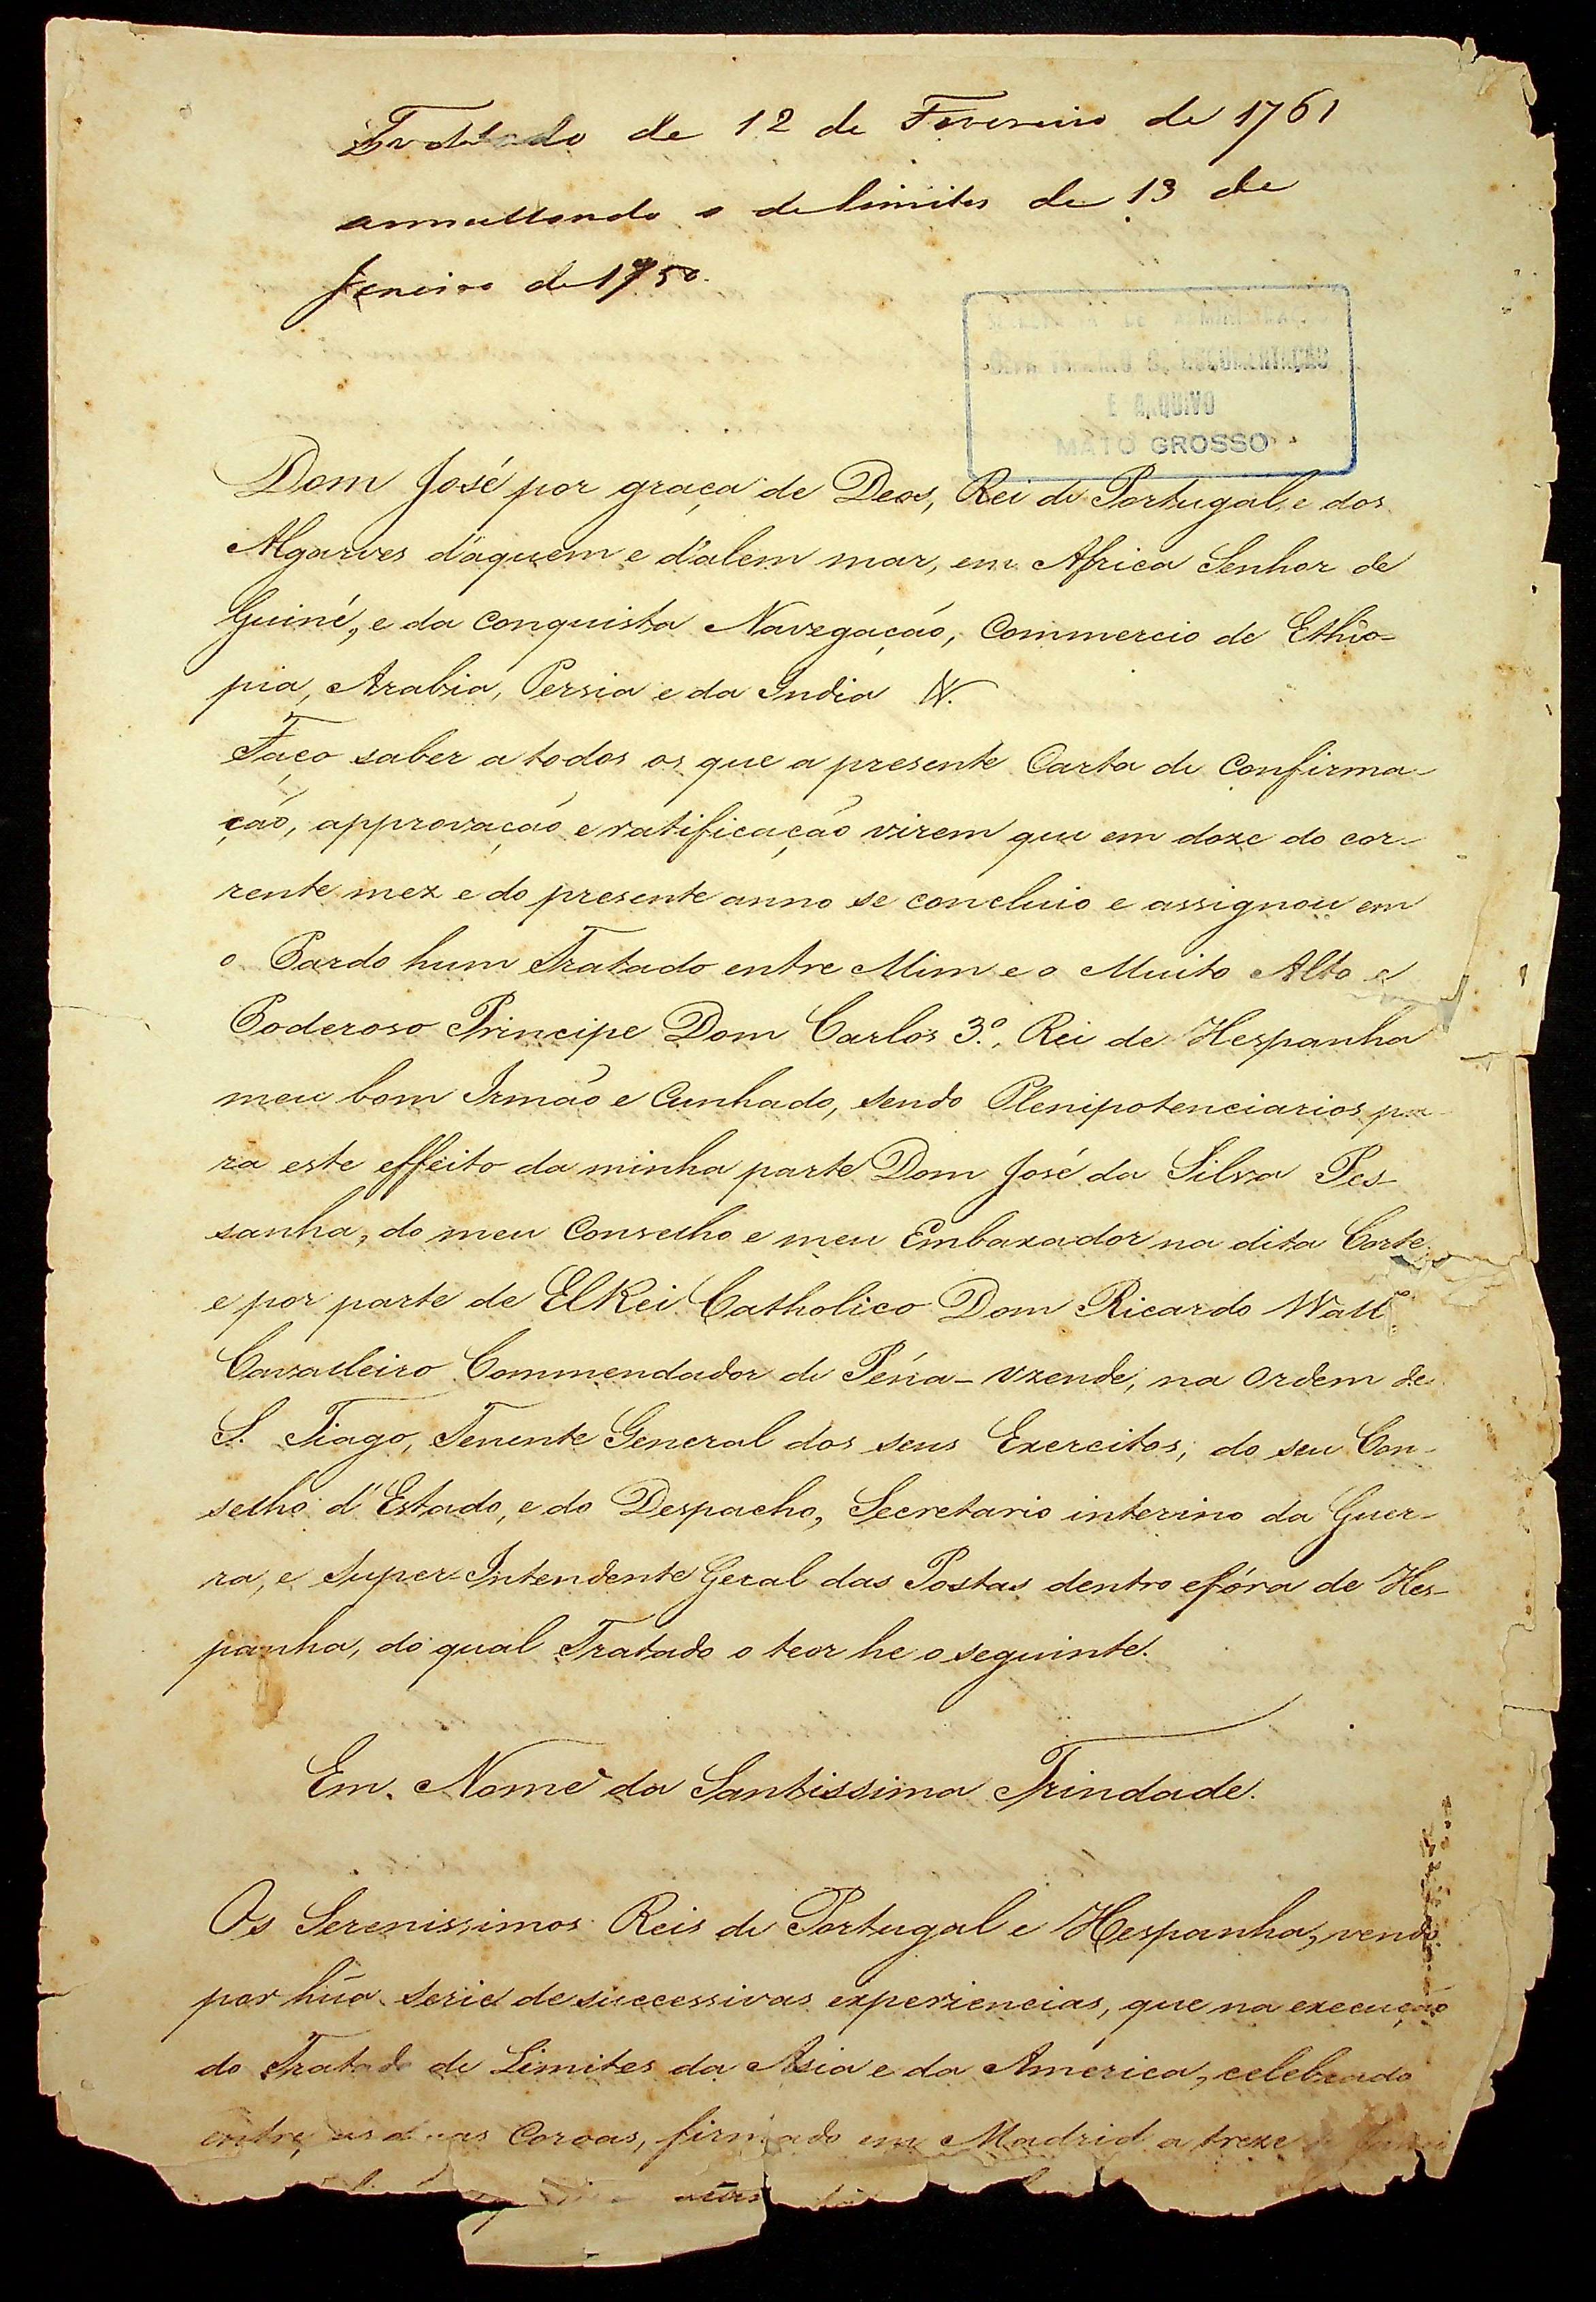 Tratado de 12 de Fevereiro de 1761
annullando o de limites de 13 de
Janeiro de 1750.
DE ADMINISTRAÇÃO
DOCUMENTAÇÃO
E ARQUIVO
MATO GROSSO
Dom José por graça de Deos, Rei de Portugal, e dos
Algarves d'aquem e d'alem mar, em Africa Senhor de
Guiné, e da Conquista Navegação, Commercio de Ethio-
pia, Arabia, Persia e da India &.
Faço saber a todos os que a presente Carta de Confirma-
ção, approvação e ratificação virem que em doze do cor-
rente mez e do presente anno se concluio e assignou em
o Pardo hum Tratado entre Mim e o Muito Alto e
Poderoso Principe Dom Carlos 3.º, Rei de Hespanha
meu bom Irmão e Cunhado, sendo Plenipotenciarios pa-
ra este effeito da minha parte Dom José da Silva Pes-
sanha, do meu Conselho e meu Embaxador na dita Corte
e por parte de ElRei Catholico Dom Ricardo Wall
Cavalleiro Commendador de Péña-Uzende, na Ordem de
S. Tiago, Tenente General dos seus Exercitos, do seu Con-
selho d'Estado, e do Despacho, Secretario interino da Guer-
ra, e Super-Intendente Geral das Postas dentro e fóra de Hes-
panha, do qual Tratado o teor he o seguinte.
Em Nome da Santissima Trindade.
Os Serenissimos Reis de Portugal e Hespanha, vendo
por hũa serie de successivas experiencias, que na execução
do Tratado de Limites da Asia e da America, celebrado
entre as duas Coroas, firmado em Madrid a treze de